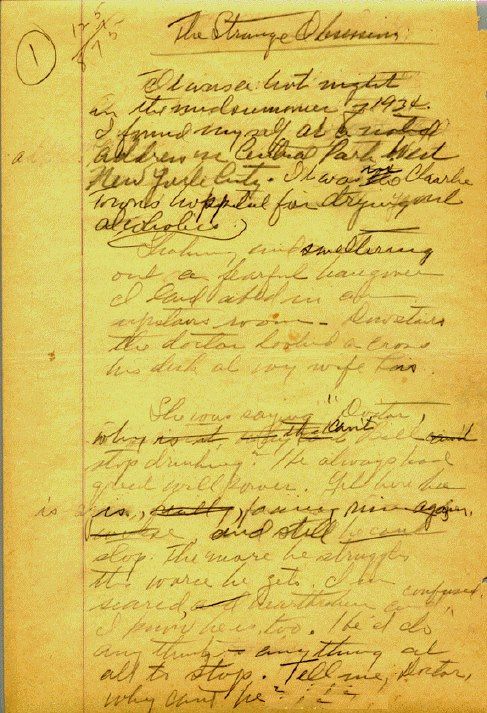 1
12 5
875
The Strange Obsession
It was a hot night
in the midsummer of 1934.
I found myself at a noted
address in Central Park West
New York City. It was the Charlie
Towns hospital for drying out
alcoholics.
and sweltering
out a fearful hangover
I laid abed in an
upstairs room. Downstairs
the doctor looked across
his desk at my wife Lois.
She was saying "Doctor,
why can't Bill
stop drinking? He always had
good will power. Yet here he
is, ruin again,
and still he can't
stop. The more he struggles
the worse he gets. I'm
scared, and heartbroken confused.
I know he is, too. He'd do
anything - anything at
all to stop. Tell me, Doctor,
why can't he?"